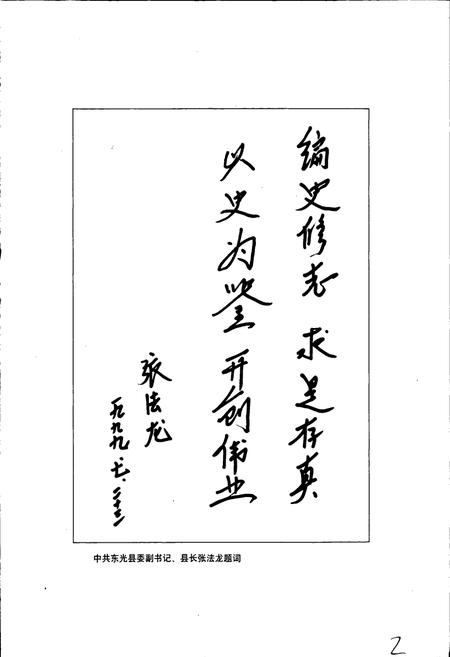 编史修志 求是存真
以史为鉴 开创伟业
张法龙
一九九九.七.二十二
中共东光县委副书记、县长张法龙题词
2